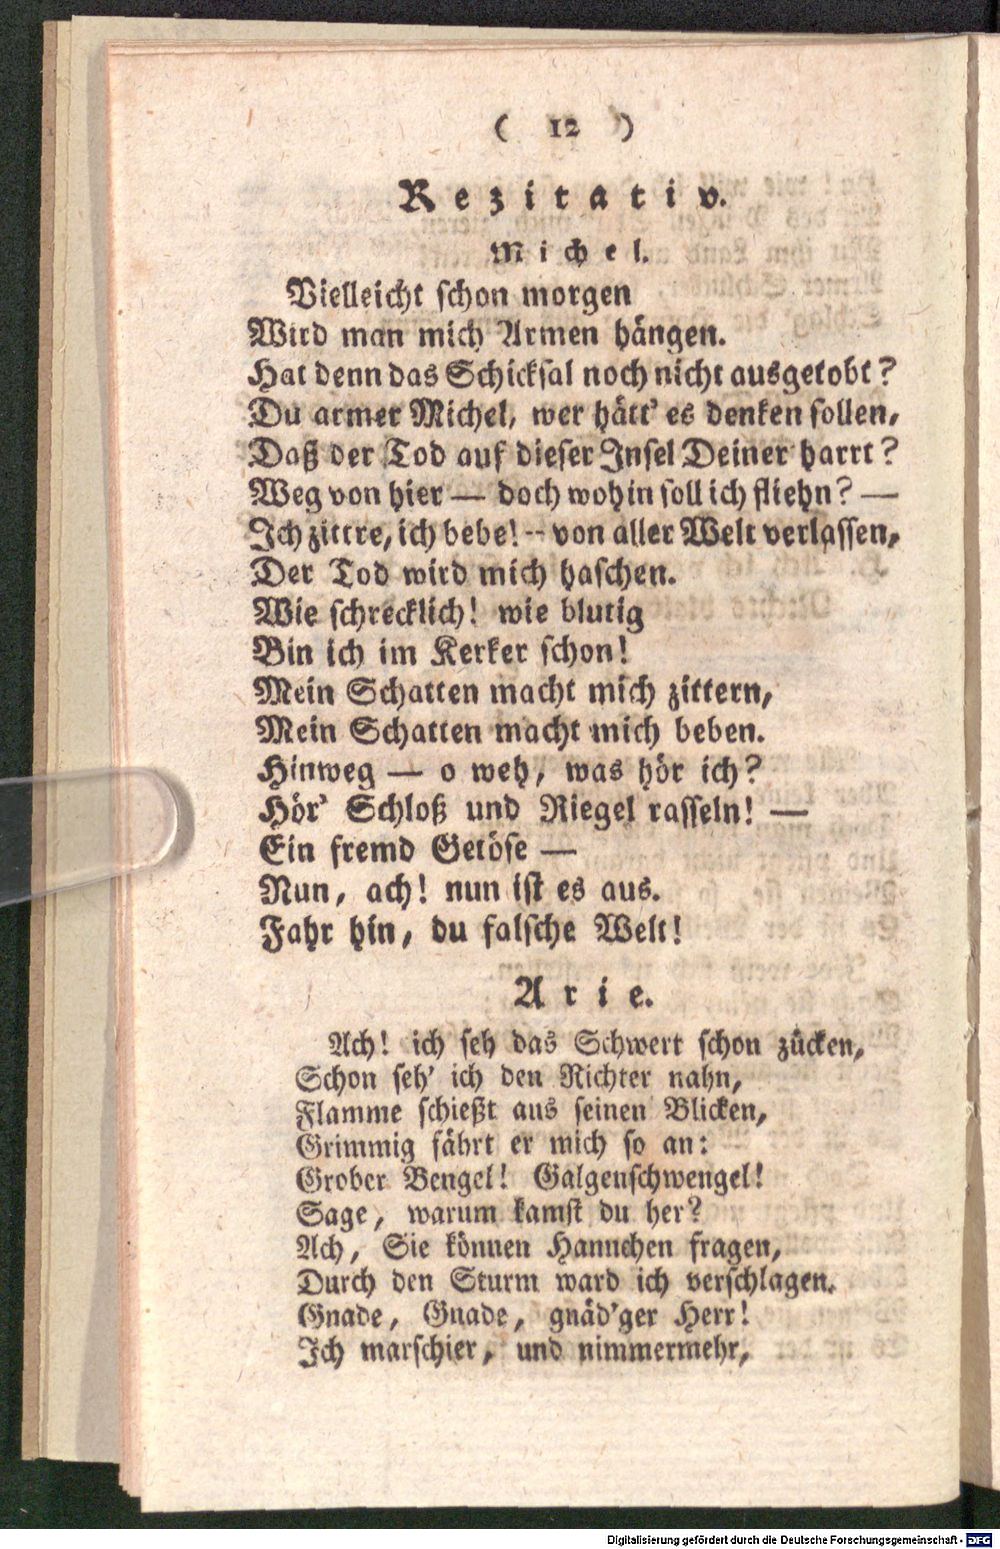 ( 12 )
Rezitativ.
Michel.
Vielleicht schon morgen
Wird man mich Armen hängen.
Hat denn das Schicksal noch nicht ausgetobt?
Du armer Michel, wer hätt' es denken sollen,
Daß der Tod auf dieser Insel Deiner harrt?
Weg von hier — doch wohin soll ich fliehn? —
Ich zittre, ich bebe! -- von aller Welt verlassen,
Der Tod wird mich haschen.
Wie schrecklich! wie blutig
Bin ich im Kerker schon!
Mein Schatten macht mich zittern,
Mein Schatten macht mich beben.
Hinweg — o weh, was hör ich?
Hör' Schloß und Riegel rasseln! —
Ein fremd Getöse —
Nun, ach! nun ist es aus.
Fahr hin, du falsche Welt!
Arie.
Ach! ich seh das Schwert schon zücken,
Schon seh' ich den Richter nahn,
Flamme schießt aus seinen Blicken,
Grimmig fährt er mich so an:
Grober Bengel! Galgenschwengel!
Sage, warum kamst du her?
Ach, Sie können Hannchen fragen,
Durch den Sturm ward ich verschlagen.
Gnade, Gnade, gnäd'ger Herr!
Ich marschier, und nimmermehr,
Digitalisierung gefördert durch die Deutsche Forschungsgemeinschaft - DFG